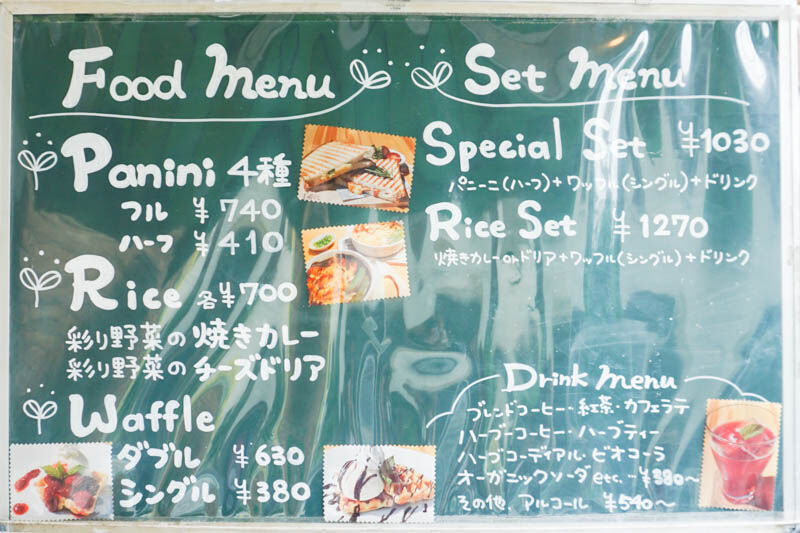 Food Menu
Panini 4種
フル ¥740
ハーフ ¥410
Rice 各¥700
彩り野菜の焼きカレー
彩り野菜のチーズドリア
Waffle
ダブル ¥630
シングル ¥380
Set Menu
Special Set ¥1030
パニーニ(ハーフ)+ワッフル(シングル)+ドリンク
Rice Set ¥1270
焼きカレーorドリア+ワッフル(シングル)+ドリンク
Drink Menu
ブレンドコーヒー・紅茶・カフェラテ
ハーブコーヒー・ハーブティー
ハーブコーディアル・ビオコーラ
オーガニックソーダetc. … ¥380〜
その他、アルコール ¥540〜